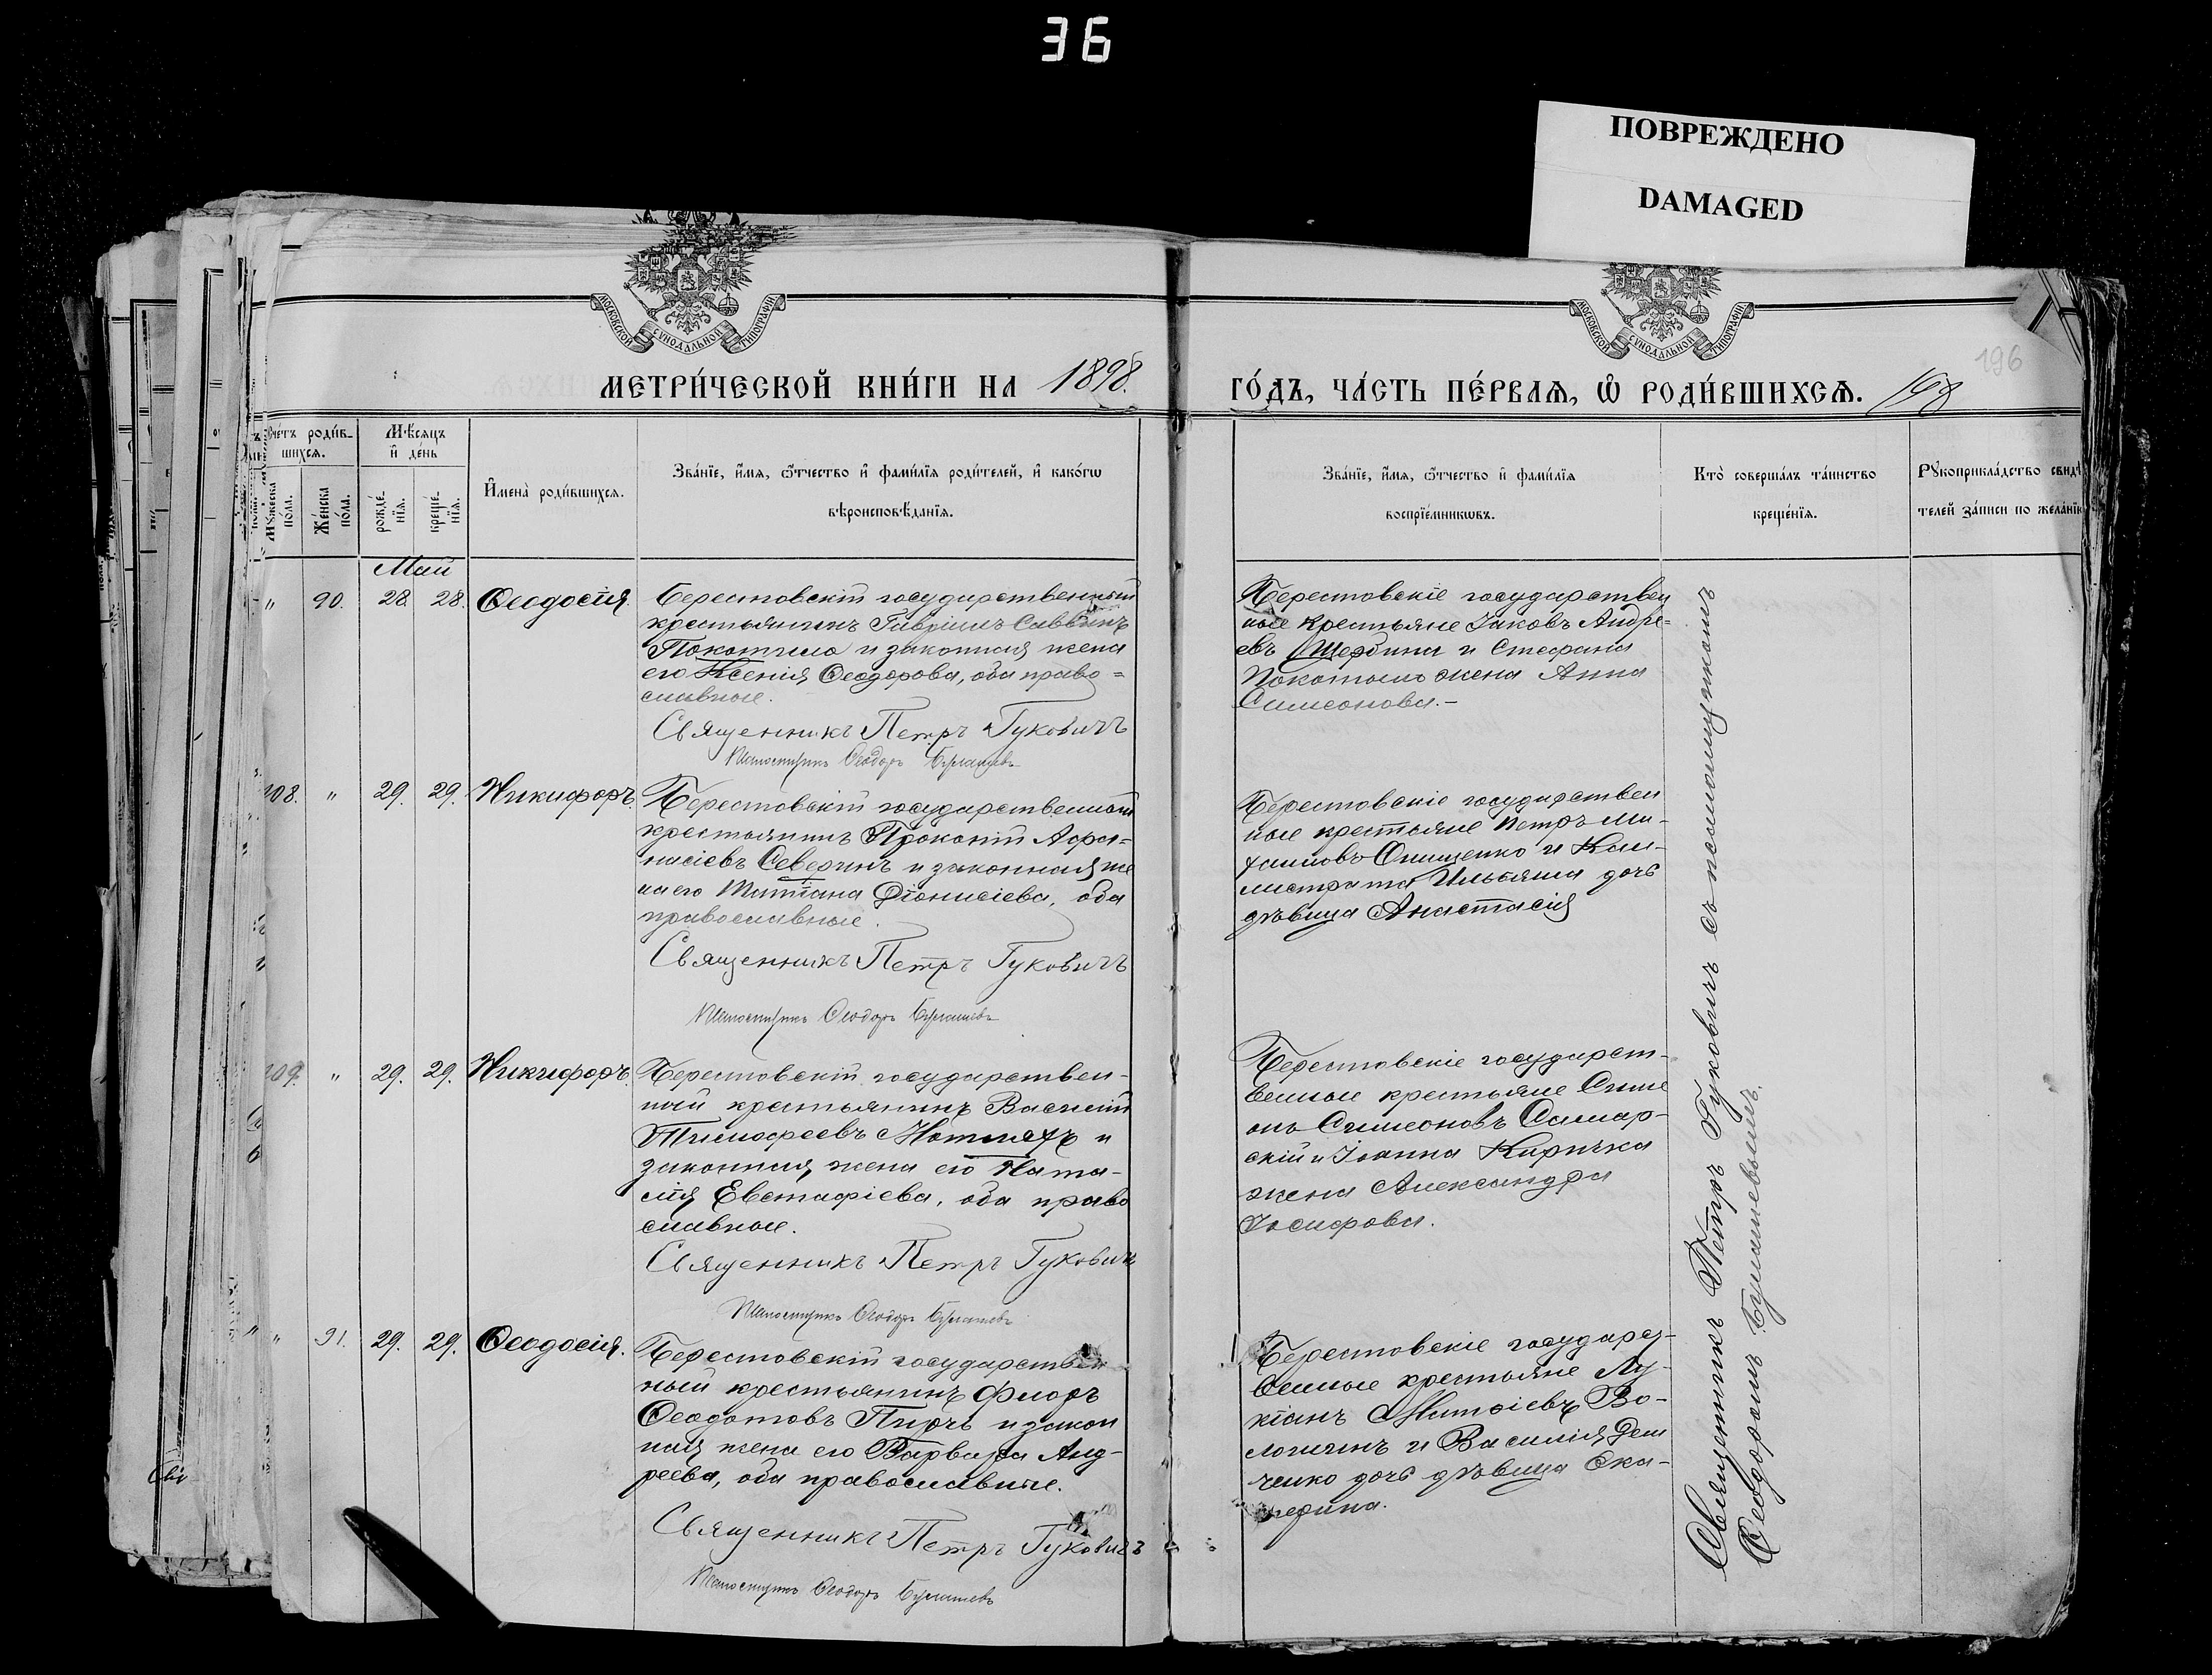 36
ПОВРЕЖДЕНО
DAMAGED
МОСКОВСКОЙ СѴНОДАЛЬНОЙ ТИПОГРАФІИ
МОСКОВСКОЙ СѴНОДАЛЬНОЙ ТИПОГРАФІИ
196
МЕТРИ́ЧЕСКОЙ КНИ́ГИ НА 1898.
ГО́ДЪ, ЧА́СТЬ ПЕ́РВАѦ, Ѽ РОДИ́ВШИХСѦ. 168
Сче́тъ роди́в-
шихсѧ.
Мꙋ́жеска
по́ла.
Же́нска
по́ла.
Мѣ́сѧцъ
и҆ де́нь
рожде́-
нїѧ.
креще́-
нїѧ.
И҆мена̀ роди́вшихсѧ.
Зва́нїе, и҆́мѧ, ѻ҆́тчество и҆ фами́лїѧ роди́телей, и҆ како́гѡ
вѣроисповѣ́данїѧ.
Зва́нїе, и҆́мѧ, ѻ҆́тчество и҆ фами́лїѧ
воспрїе́мникѡвъ.
Кто̀ соверша́лъ та́инство
креще́нїѧ.
Рꙋкоприкла́дство свид
телей за́писи по жела́нїю
Май
" 90. 28. 28. Ѳеодосія.
Берестовскій государственный
крестьянинъ Гавріилъ Саввинъ
Покотило и законная жена
его Ксенія Ѳеодорова, оба право=
славные.
Священникъ Петръ Гуковичъ
Псаломщикъ Ѳеодоръ
Берестовскіе государствен
ные крестьяне Іаковъ Андре=
евъ Щербина и Стефана
Покотило жена Анна
Симеонова.-
108. " 29. 29. Никифоръ.
Берестовскій государственный
крестьянинъ Прокопій Афа-
насіевъ Северинъ и законная же
на его Татіана Діонисіева, оба
православные.
Священникъ Петръ Гуковичъ
Псаломщикъ Ѳеодоръ
Берестовскіе государствен
ные крестьяне Петръ Ми-
хаиловъ Онищенко и Кал-
листрата Ильяша дочь
дѣвица Анастасія
109. " 29. 29. Никифоръ.
Берестовскій государствен-
ный крестьянинъ Василій
Тимофеевъ и
законная жена его Ната-
лія Евстафіева, оба право
славные.
Священникъ Петръ Гуковичъ
Псаломщикъ Ѳеодоръ
Берестовскіе государст-
венные крестьяне Симе
онъ Симеоновъ Самар-
скій и Іоанна Киричка
жена Александра
Іосифова.
" 91. 29. 29. Ѳеодосія.
Берестовскій государствен
ный крестьянинъ Флоръ
Ѳеодотовъ Пирчъ и закон
ная жена его Варвара Анд-
реева, оба православные.
Священникъ Петръ Гуковичъ
Псаломщикъ Ѳеодоръ
Берестовскіе государст-
венные крестьяне Лу-
кіанъ Во-
лошинъ и Василія Дем
ченко дочь дѣвица Ека-
терина.
Священникъ Петръ Гуковичъ съ псаломщикомъ
Ѳеодоромъ